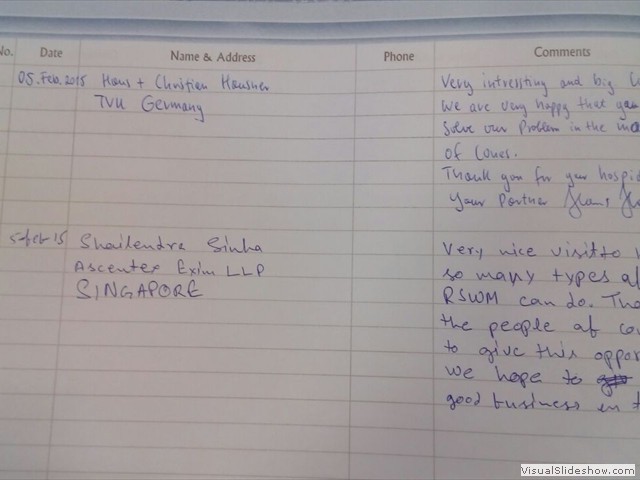 No. Date Name & Address Phone Comments
05.Feb.2015 Hans + Christian Hausner Very intressting and big
TVU Germany We are very happy that you
Solve our Problem in the
of Cones.
Thank you for your hospi
Your Partner Hans
5 feb 15 Shailendra Sinha Very nice visit to
Ascentex Exim LLP so many types of
SINGAPORE RSWM can do. Tha
the people of co
to give this oppor
we hope to
good business in t
VisualSlideshow.com